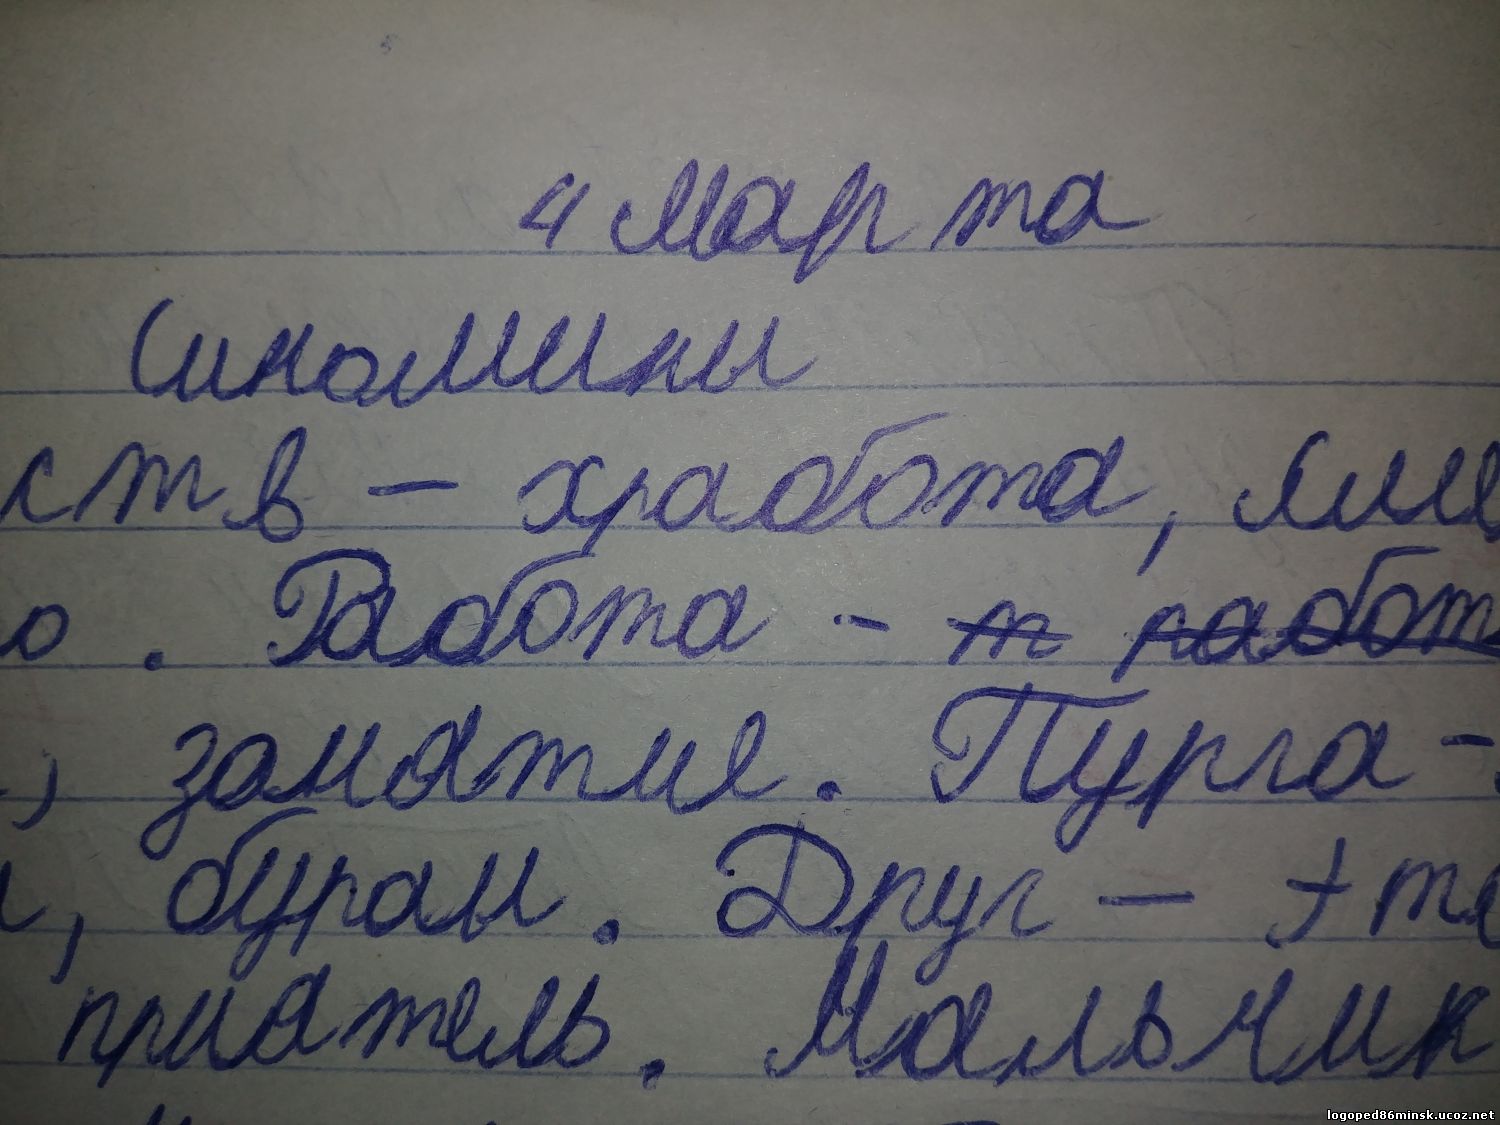 4 Марта
Синомины
ств - хработа, сме
о. Работа - т работ
, заматие. Пурга -
, буран. Друг - это
приатель. Мальчик
logoped86minsk.ucoz.net